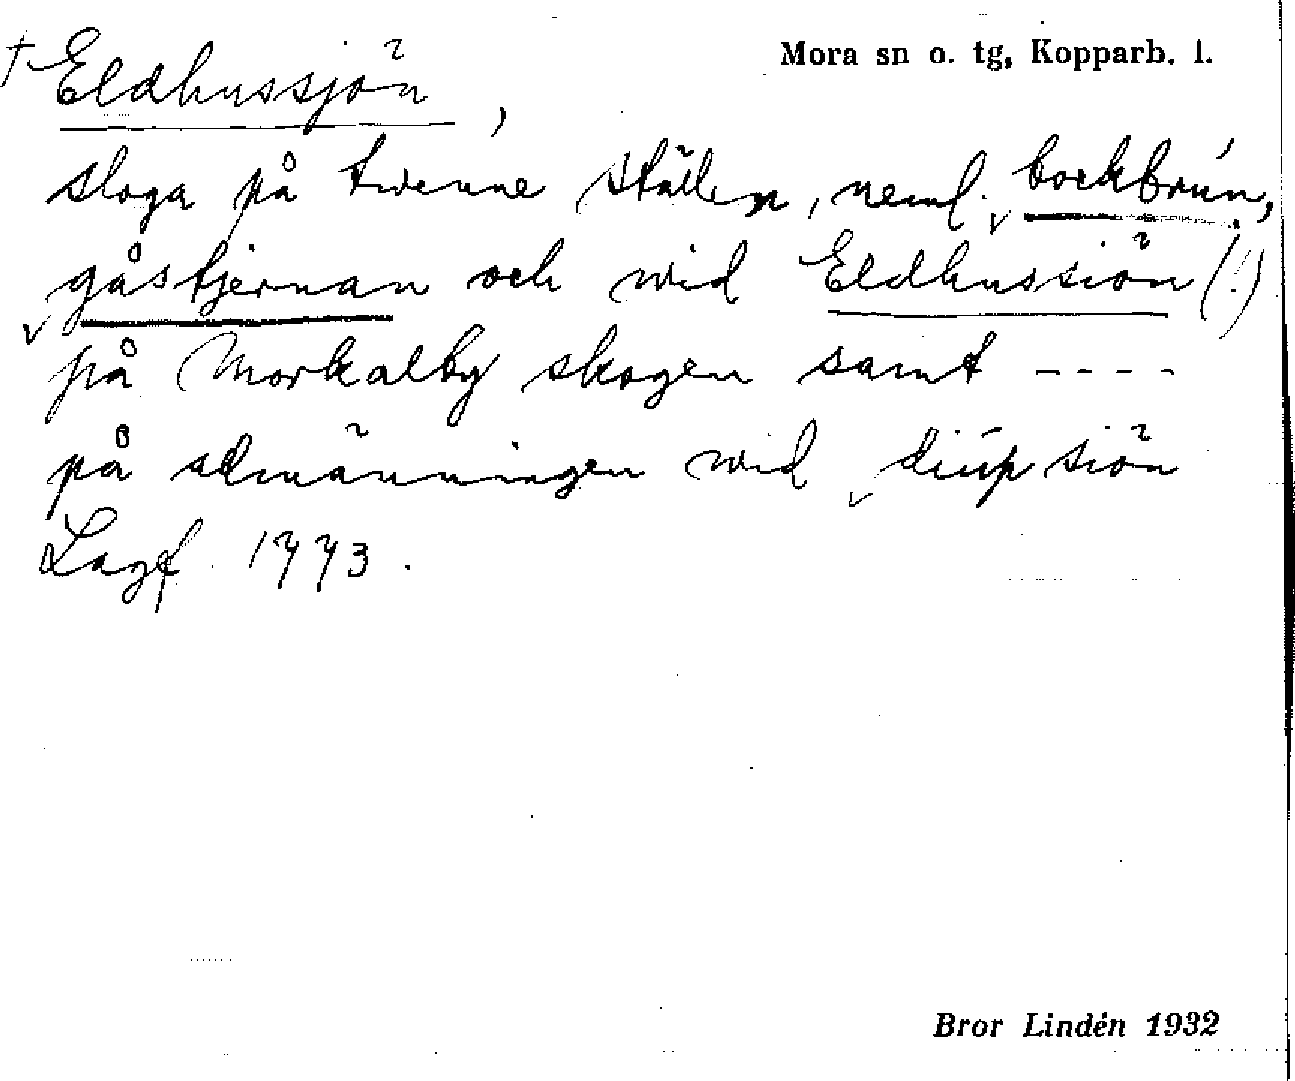 † Eldhussjön,
Mora sn o. tg, Kopparb. l.
sloga på twenne ställen, neml. bockbrún,
gåstjernan och wid Eldhussiön (!)
på Morkalby skogen samt ----
på almänningen wid diúpsiön
Lagf. 1773.
Bror Lindén 1932